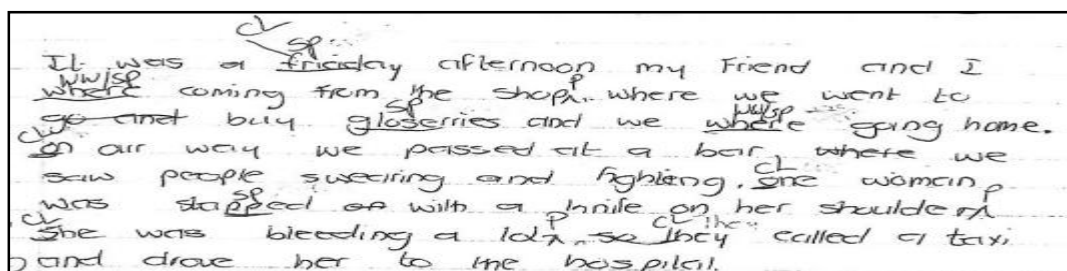 CL
sp
It was a friciday afternoon my Friend and I
ww/sp p
where coming from the shop. where we went to
sp ww/sp
go and buy gloserries and we where going home.
CL
on our way we passed at a bar, where we
CL
saw people swearing and fighting. one woman
sp p
was stapped on with a knife on her shoulder
CL p CL they
she was bleeding a lot, so they called a taxi
and drove her to the hospital.